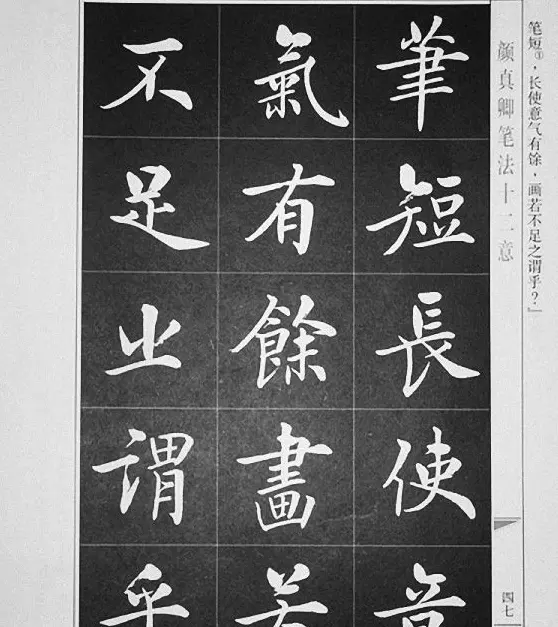 笔短①，长使意气有馀，画若不足之谓乎？」
颜真卿笔法十二意
四七
筆短長使意
氣有餘畫若
不足之謂乎